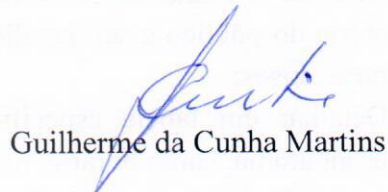 Guilherme da Cunha Martins